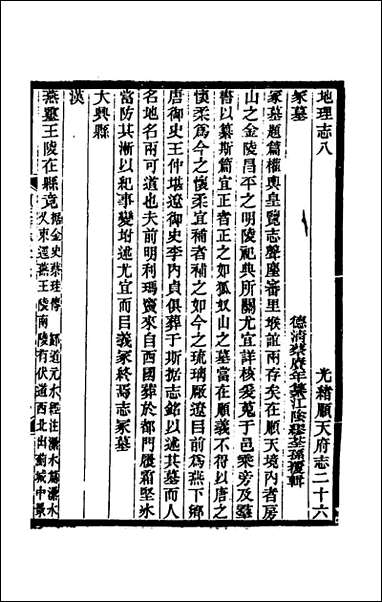 地理志八　光緒順天府志二十六
冢墓　德清蔡賡年纂江陰繆荃孫覆輯
冢墓題篇權輿皇覽志聲塋審里堠誼兩存矣在順天境內者房
山之金陵昌平之明陵祀典所關尤宜詳核爰蒐于邑乘旁及羣
書以纂斯篇宜正者正之如狐奴山之墓當在順義不得以唐之
懷柔爲今之懷柔宜補者補之如今之琉璃厰遼目前爲燕下鄉
唐御史王仲堪遼御史李內貞俱葬于斯据志銘以述其墓而人
名地名兩可道也夫前明利瑪竇來自西國葬於都門履霜堅氷
當防其漸以紀事變坿述尤宜而目義冢終焉志冢墓
大興縣
漢
燕靈王陵在縣竟据金史蔡珪傳　鄧道元水經注㶟水篇㶟水
又東逕燕王陵南陵有伏道西北出薊城中景